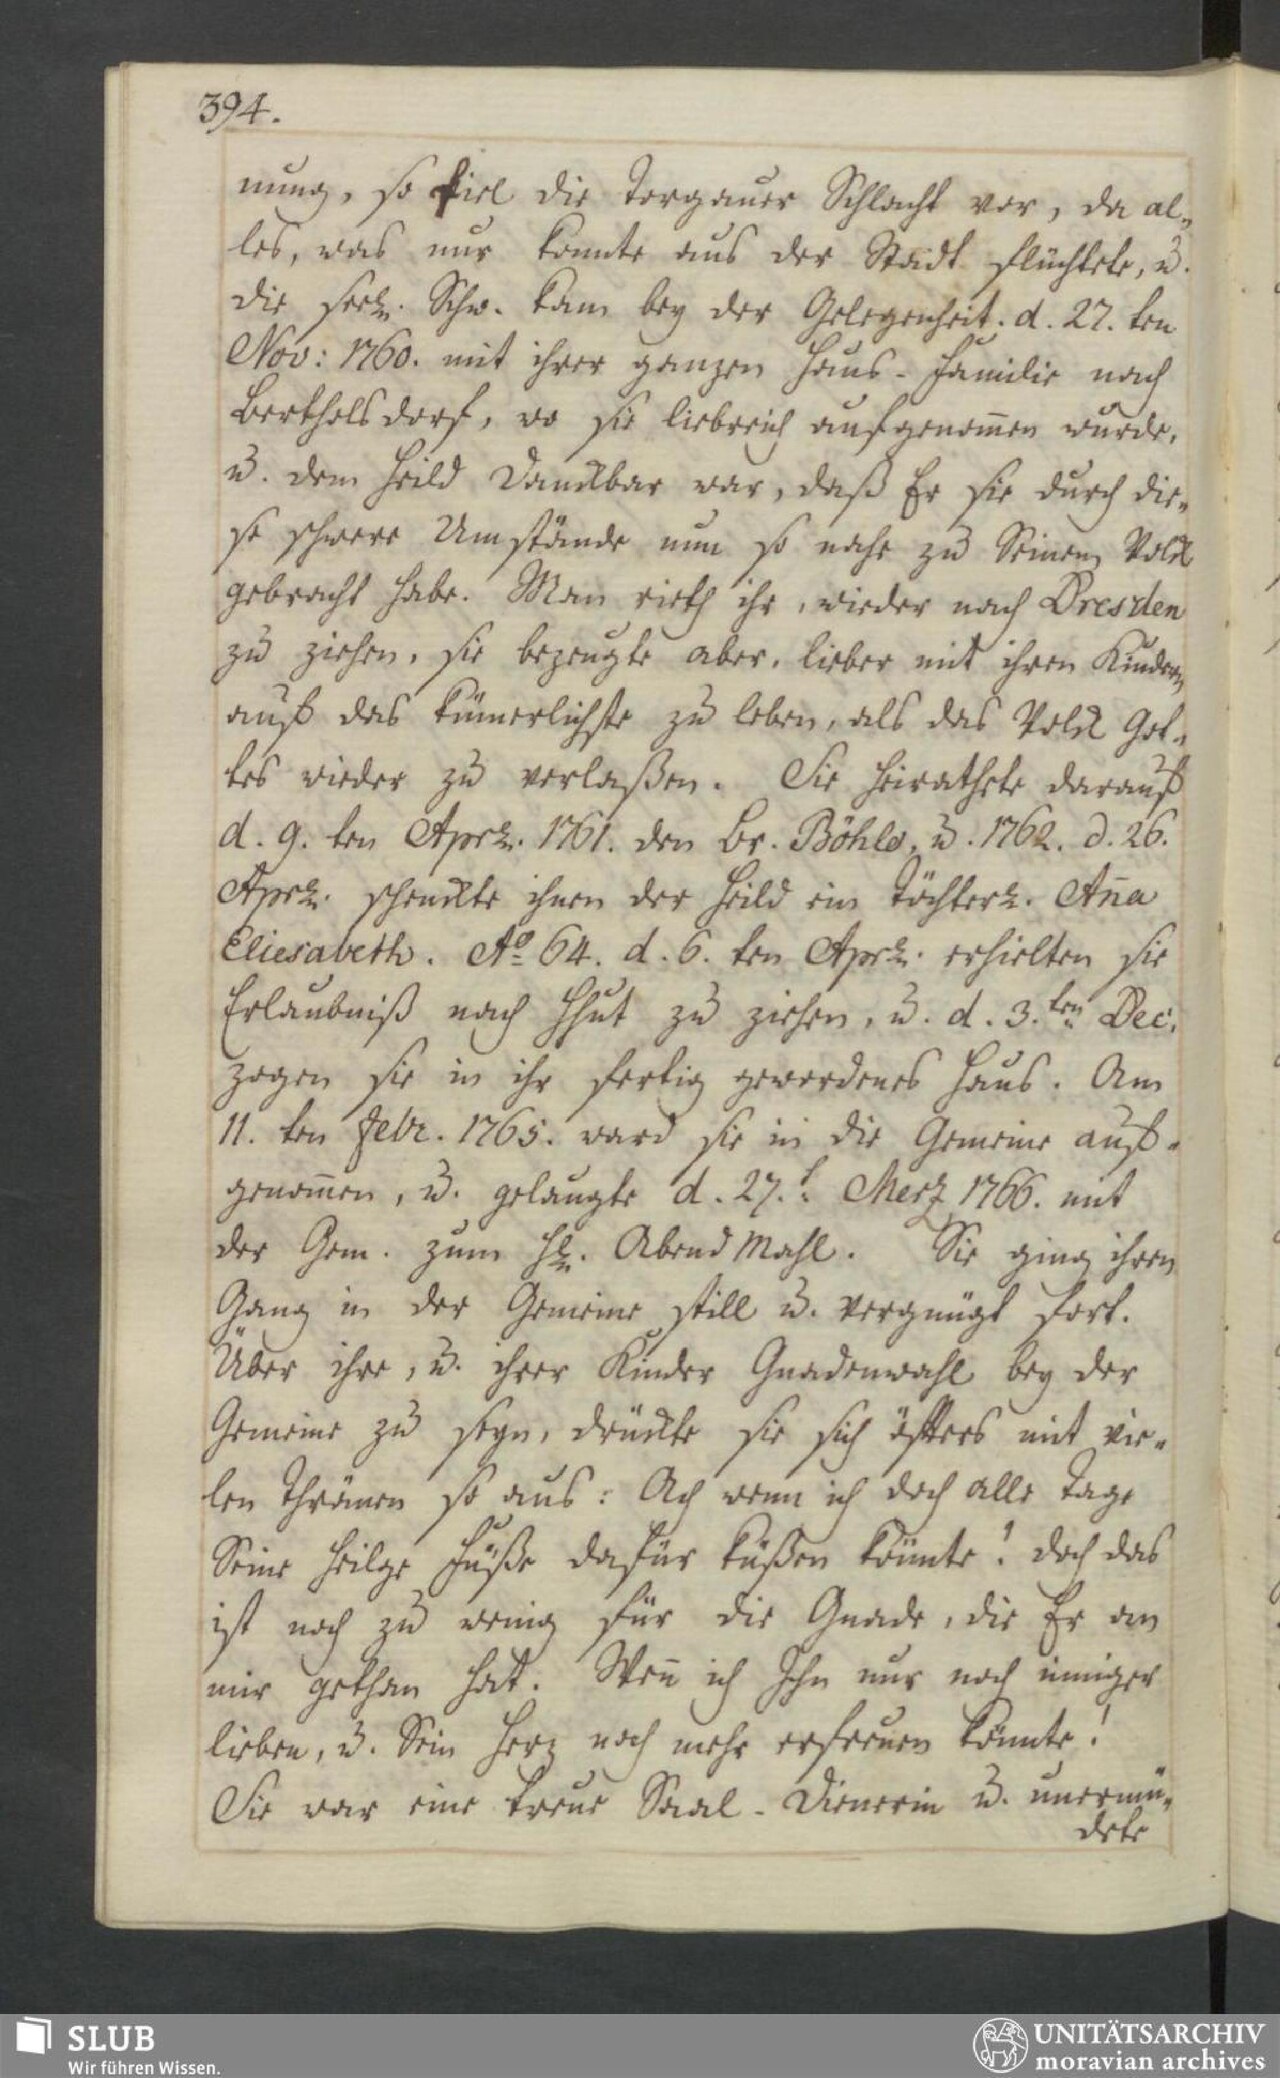 394.
nung, so fiel die Torgauer Schlacht vor, da al-
les, was nur konnte aus der Stadt flüchtete, u.
die seel. Schw. kam bey der Gelegenheit d. 27. ten
Nov: 1760. mit ihrer ganzen Haus-Familie nach
Berthelsdorf, wo sie liebreich aufgenom̅en wurde,
u. dem Heild Danckbar war, daß Er sie durch die-
se schwere Umstände nun so nahe zu Seinem Volck
gebracht habe. Man rieth ihr, wieder nach Dresden
zu ziehen, sie bezeugte aber, lieber mit ihren Kindern
auf das küm̅erlichste zu leben, als das Volck Got-
tes wieder zu verlaßen. Sie heirathete darauf
d. 9. ten Apr. 1761. den Br. Böhle, u. 1762. d. 26.
Apr. schenckte ihnen der Heild ein Töchterl. An̅a
Eliesabeth. Ao 64. d. 6. ten Apr. erhielten sie
Erlaubniß nach Hhut zu ziehen, u. d. 3. ten Dec.
zogen sie in ihr fertig gewordenes Haus. Am
11. ten Febr. 1765. ward sie in die Gemeine auf-
genom̅en, u. gelangte d. 27. t. Merz 1766. mit
der Gem. zum Hl. Abend Mahl. Sie ging ihren
Gang in der Gemeine still u. vergnügt fort.
Über ihre, u. ihrer Kinder Gnadenwahl bey der
Gemeine zu seyn, drückte sie sich öfters mit vie-
len Thränen so aus: Ach wenn ich doch alle Tage
Seine heilge Füße dafür küßen könnte! doch das
ist noch zu wenig für die Gnade, die Er an
mir gethan hat. Wen̅ ich Ihn nur noch inniger
lieben, u. Sein Herz noch mehr erfreuen könnte!
Sie war eine treue Saal-Dienerin u. unermü-
dete
SLUB
Wir führen Wissen.
UNITÄTSARCHIV
moravian archives